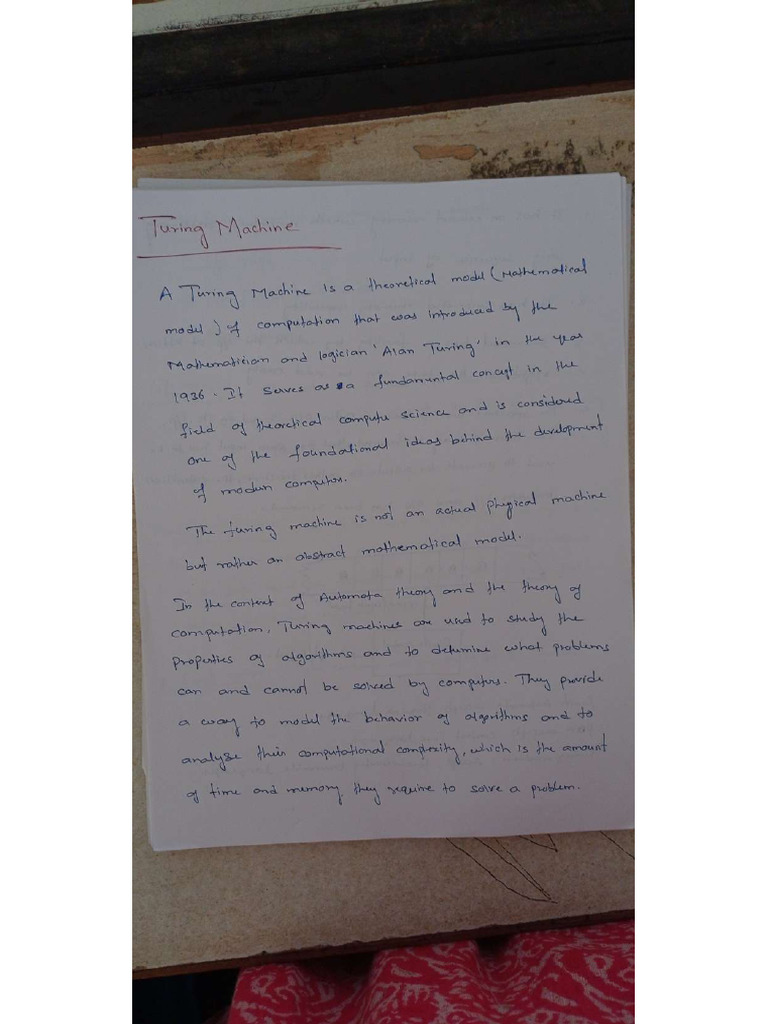 Turing Machine
A Turing Machine is a theoretical model (Mathematical
model) of computation that was introduced by the
Mathematician and logician 'Alan Turing' in the year
1936. It serves as a fundamental concept in the
field of theoretical compute science and is considered
one of the foundational ideas behind the development
of modern computers.
The turing machine is not an actual physical machine
but rather an abstract mathematical model.
In the context of Automata theory and the theory of
computation, Turing machines are used to study the
properties of algorithms and to determine what problems
can and cannot be solved by computers. They provide
a way to model the behavior of algorithms and to
analyse their computational complexity, which is the amount
of time and memory they require to solve a problem.